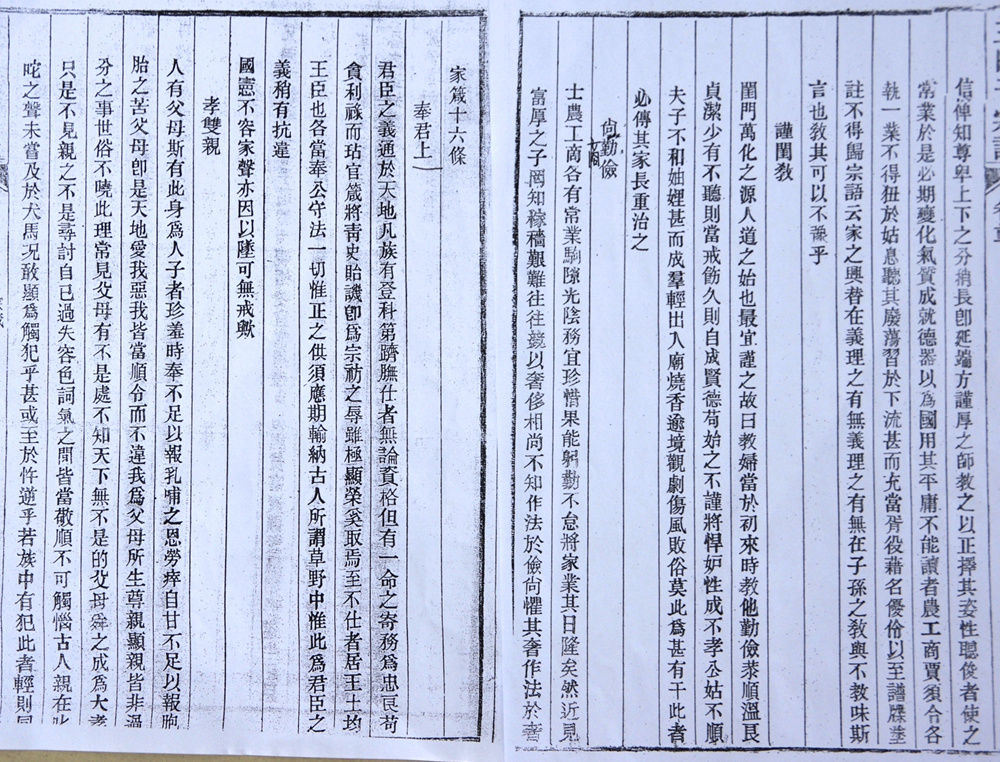 信俾知尊卑上下之分稍長卽延端方謹厚之師教之以正擇其姿性聰俊者使之
常業於是必期變化氣質成就德器以為國用其平庸不能讀者農工商賈須令各
執一業不得狃於姑息聽其廢蕩習於下流甚而充當胥役藉名優伶以至譜牒塗
註不得歸宗語云家之興替在義理之有無義理之有無在子孫之敎與不教味斯
言也敎其可以不豫乎
謹閨敎
閨門萬化之源人道之始也最宜謹之故曰教婦當於初來時教他勤儉恭順溫良
貞潔少有不聽則當戒飭久則自成賢德苟始之不謹將悍妒性成不孝公姑不順
夫子不和妯娌甚而成羣輕出入廟燒香遊境觀劇傷風敗俗莫此爲甚有干此者
必傳其家長重治之
尙勤儉
士農工商各有常業駒隙光陰務宜珍惜果能躬勤不怠將家業其日隆矣然近見
富厚之子罔知稼穡艱難往往競以奢侈相尚不知作法於儉尙懼其奢作法於奢
家箴十六條
奉君上
君臣之義通於天地凡族有登科第躋膴仕者無論資格但有一命之寄務爲忠良苟
貪利祿而玷官箴將靑史貽譏卽爲宗祊之辱雖極顯榮奚取焉至不仕者居王土均
王臣也各當奉公守法一切惟正之供須應期輸納古人所謂草野中惟此爲君臣之
義稍有抗違
國憲不容家聲亦因以墜可無戒歟
孝雙親
人有父母斯有此身爲人子者珍羞時奉不足以報孔哺之恩勞瘁自甘不足以報胞
胎之苦父母卽是天地愛我惡我皆當順令而不違我爲父母所生尊親顯親皆非溫
分之事世俗不曉此理常見父母有不是處不知天下無不是的父母舜之成爲大孝
只是不見親之不是尋討自已過失容色詞氣之間皆當敬順不可觸惱古人親在叱
咤之聲未嘗及於犬馬况敢顯爲觸犯乎甚或至於忤逆乎若族中有犯此者輕則同